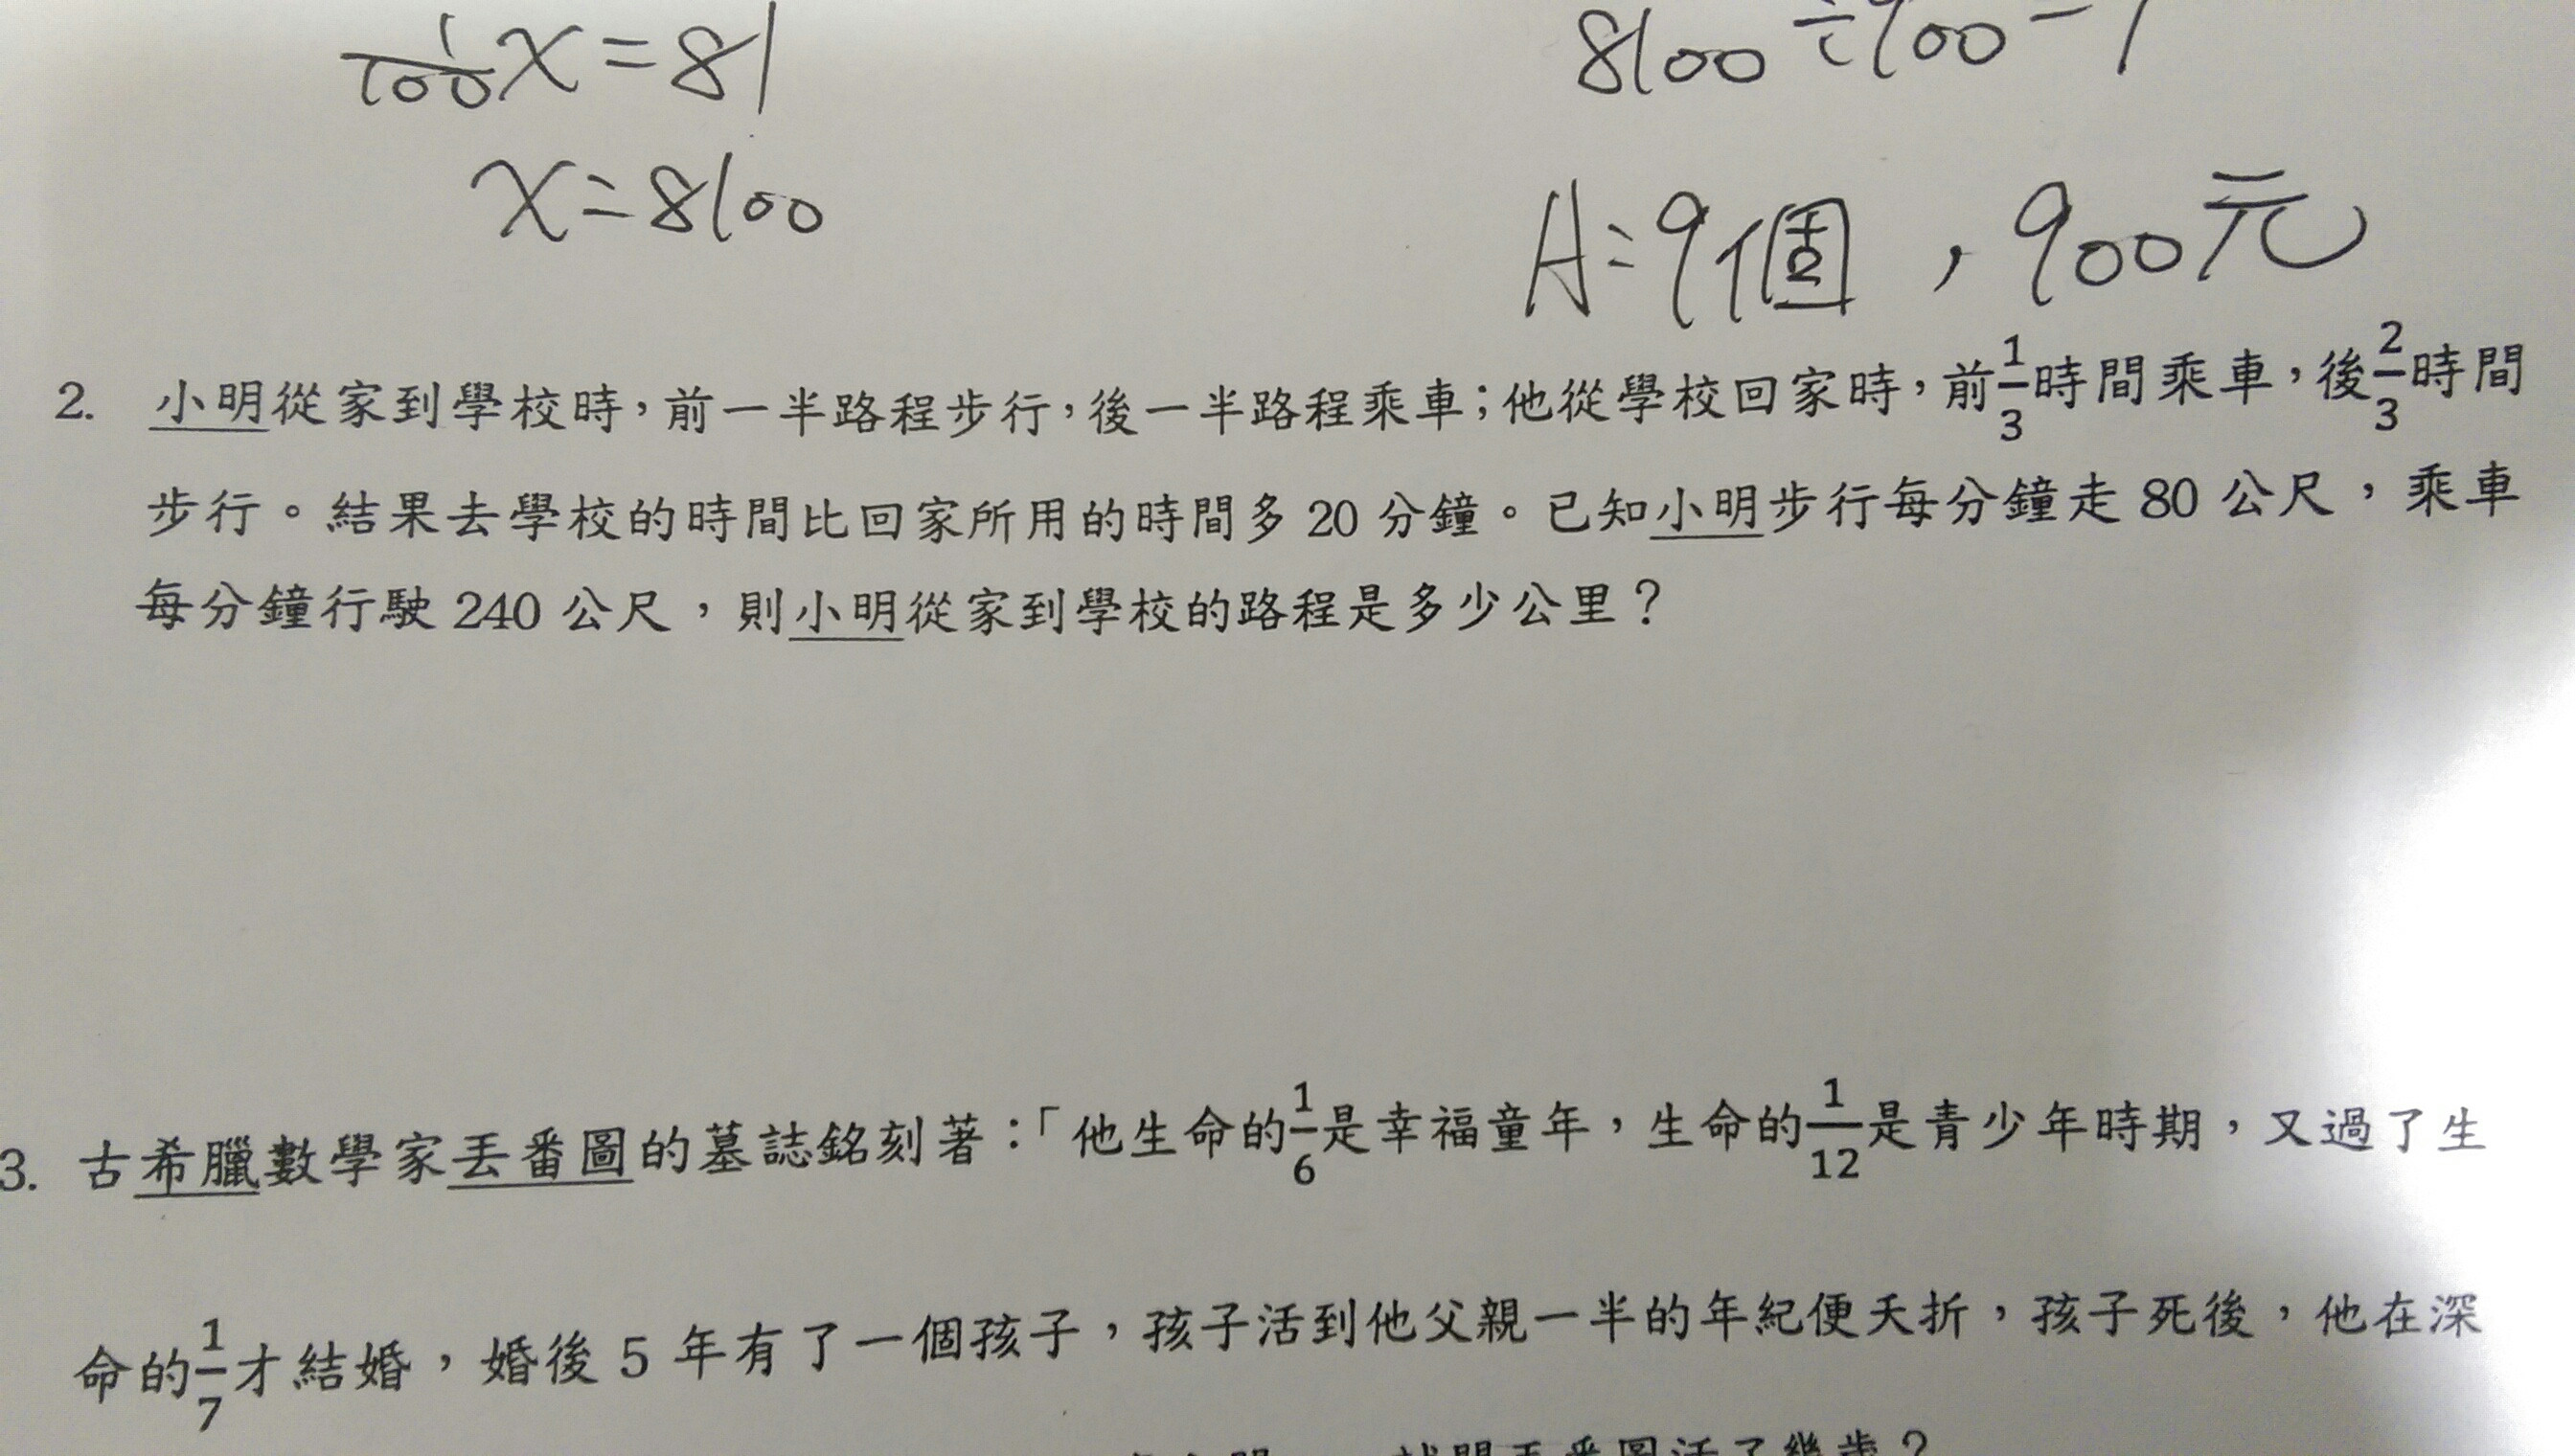 1/100 x = 81
8100 ÷ 900 =
x = 8100
A: 9個，900元
2. 小明從家到學校時，前一半路程步行，後一半路程乘車；他從學校回家時，前1/3時間乘車，後2/3時間
步行。結果去學校的時間比回家所用的時間多 20 分鐘。已知小明步行每分鐘走 80 公尺，乘車
每分鐘行駛 240 公尺，則小明從家到學校的路程是多少公里？
3. 古希臘數學家丟番圖的墓誌銘刻著：「他生命的1/6是幸福童年，生命的1/12是青少年時期，又過了生
命的1/7才結婚，婚後 5 年有了一個孩子，孩子活到他父親一半的年紀便夭折，孩子死後，他在深
丟番圖活了幾歲？